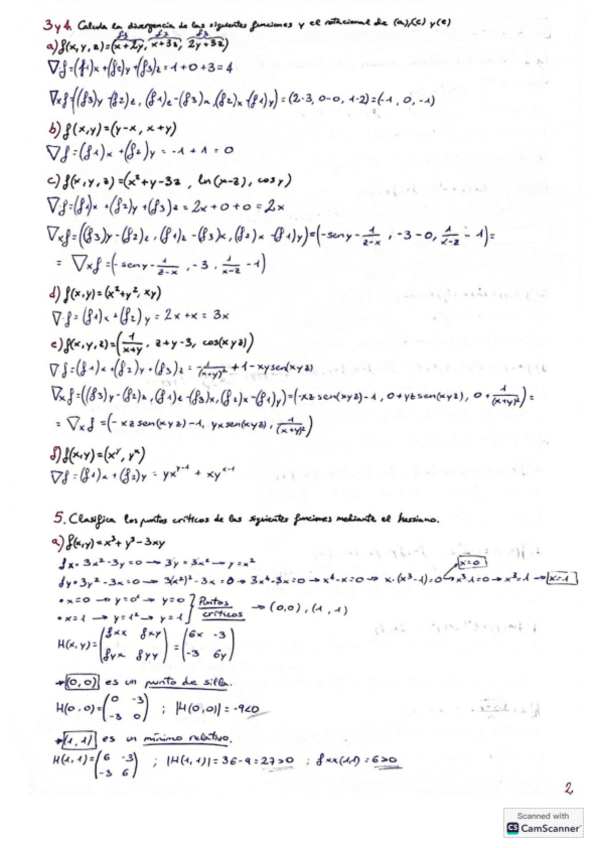 3 y 4. Calcula la divergencia de las siguientes funciones y el rotacional de (a),(c) y (e)
f1 f2 f3
a) f(x,y,z)=(x+2y, x+3z, 2y+3z)
∇f=(f1)x+(f2)y+(f3)z=1+0+3=4
∇xf=((f3)y-(f2)z, (f1)z-(f3)x, (f2)x-(f1)y)=(2-3, 0-0, 1-2)=(-1, 0, -1)
b) f(x,y)=(y-x, x+y)
∇f=(f1)x+(f2)y=-1+1=0
c) f(x,y,z)=(x²+y-3z, ln(x-z), cosy)
∇f=(f1)x+(f2)y+(f3)z=2x+0+0=2x
∇xf=((f3)y-(f2)z, (f1)z-(f3)x, (f2)x-(f1)y)=(-seny-1/(z-x), -3-0, 1/(x-z)-1)=
= ∇xf=(-seny-1/(z-x), -3, 1/(x-z)-1)
d) f(x,y)=(x²+y², xy)
∇f=(f1)x+(f2)y=2x+x=3x
e) f(x,y,z)=(1/(x+y), z+y-3, cos(xyz))
∇f=(f1)x+(f2)y+(f3)z=-1/(x+y)²+1-xysen(xyz)
∇xf=((f3)y-(f2)z, (f1)z-(f3)x, (f2)x-(f1)y)=(-xzsen(xyz)-1, 0+yzsen(xyz), 0+1/(x+y)²)=
= ∇xf=(-xzsen(xyz)-1, yxsen(xyz), 1/(x+y)²)
f) f(x,y)=(x^y, y^x)
∇f=(f1)x+(f2)y=yx^(y-1)+xy^(x-1)
5. Clasifica los puntos críticos de las siguientes funciones mediante el hessiano.
a) f(x,y)=x³+y³-3xy
fx=3x²-3y=0→3y=3x²→y=x² x=0
fy=3y²-3x=0→3(x²)²-3x=0→3x⁴-3x=0→x⁴-x=0→x·(x³-1)=0→x³-1=0→x³=1→x=1
•x=0→y=0²→y=0 } Puntos
•x=1→y=1²→y=1 } críticos →(0,0),(1,1)
H(x,y)=(fxx fxy; fyx fyy)=(6x -3; -3 6y)
→(0,0) es un punto de silla.
H(0,0)=(0 -3; -3 0) ; |H(0,0)|=-9<0
→(1,1) es un mínimo relativo.
H(1,1)=(6 -3; -3 6) ; |H(1,1)|=36-9=27>0 ; fxx(1,1)=6>0
2
Scanned with
CS CamScanner